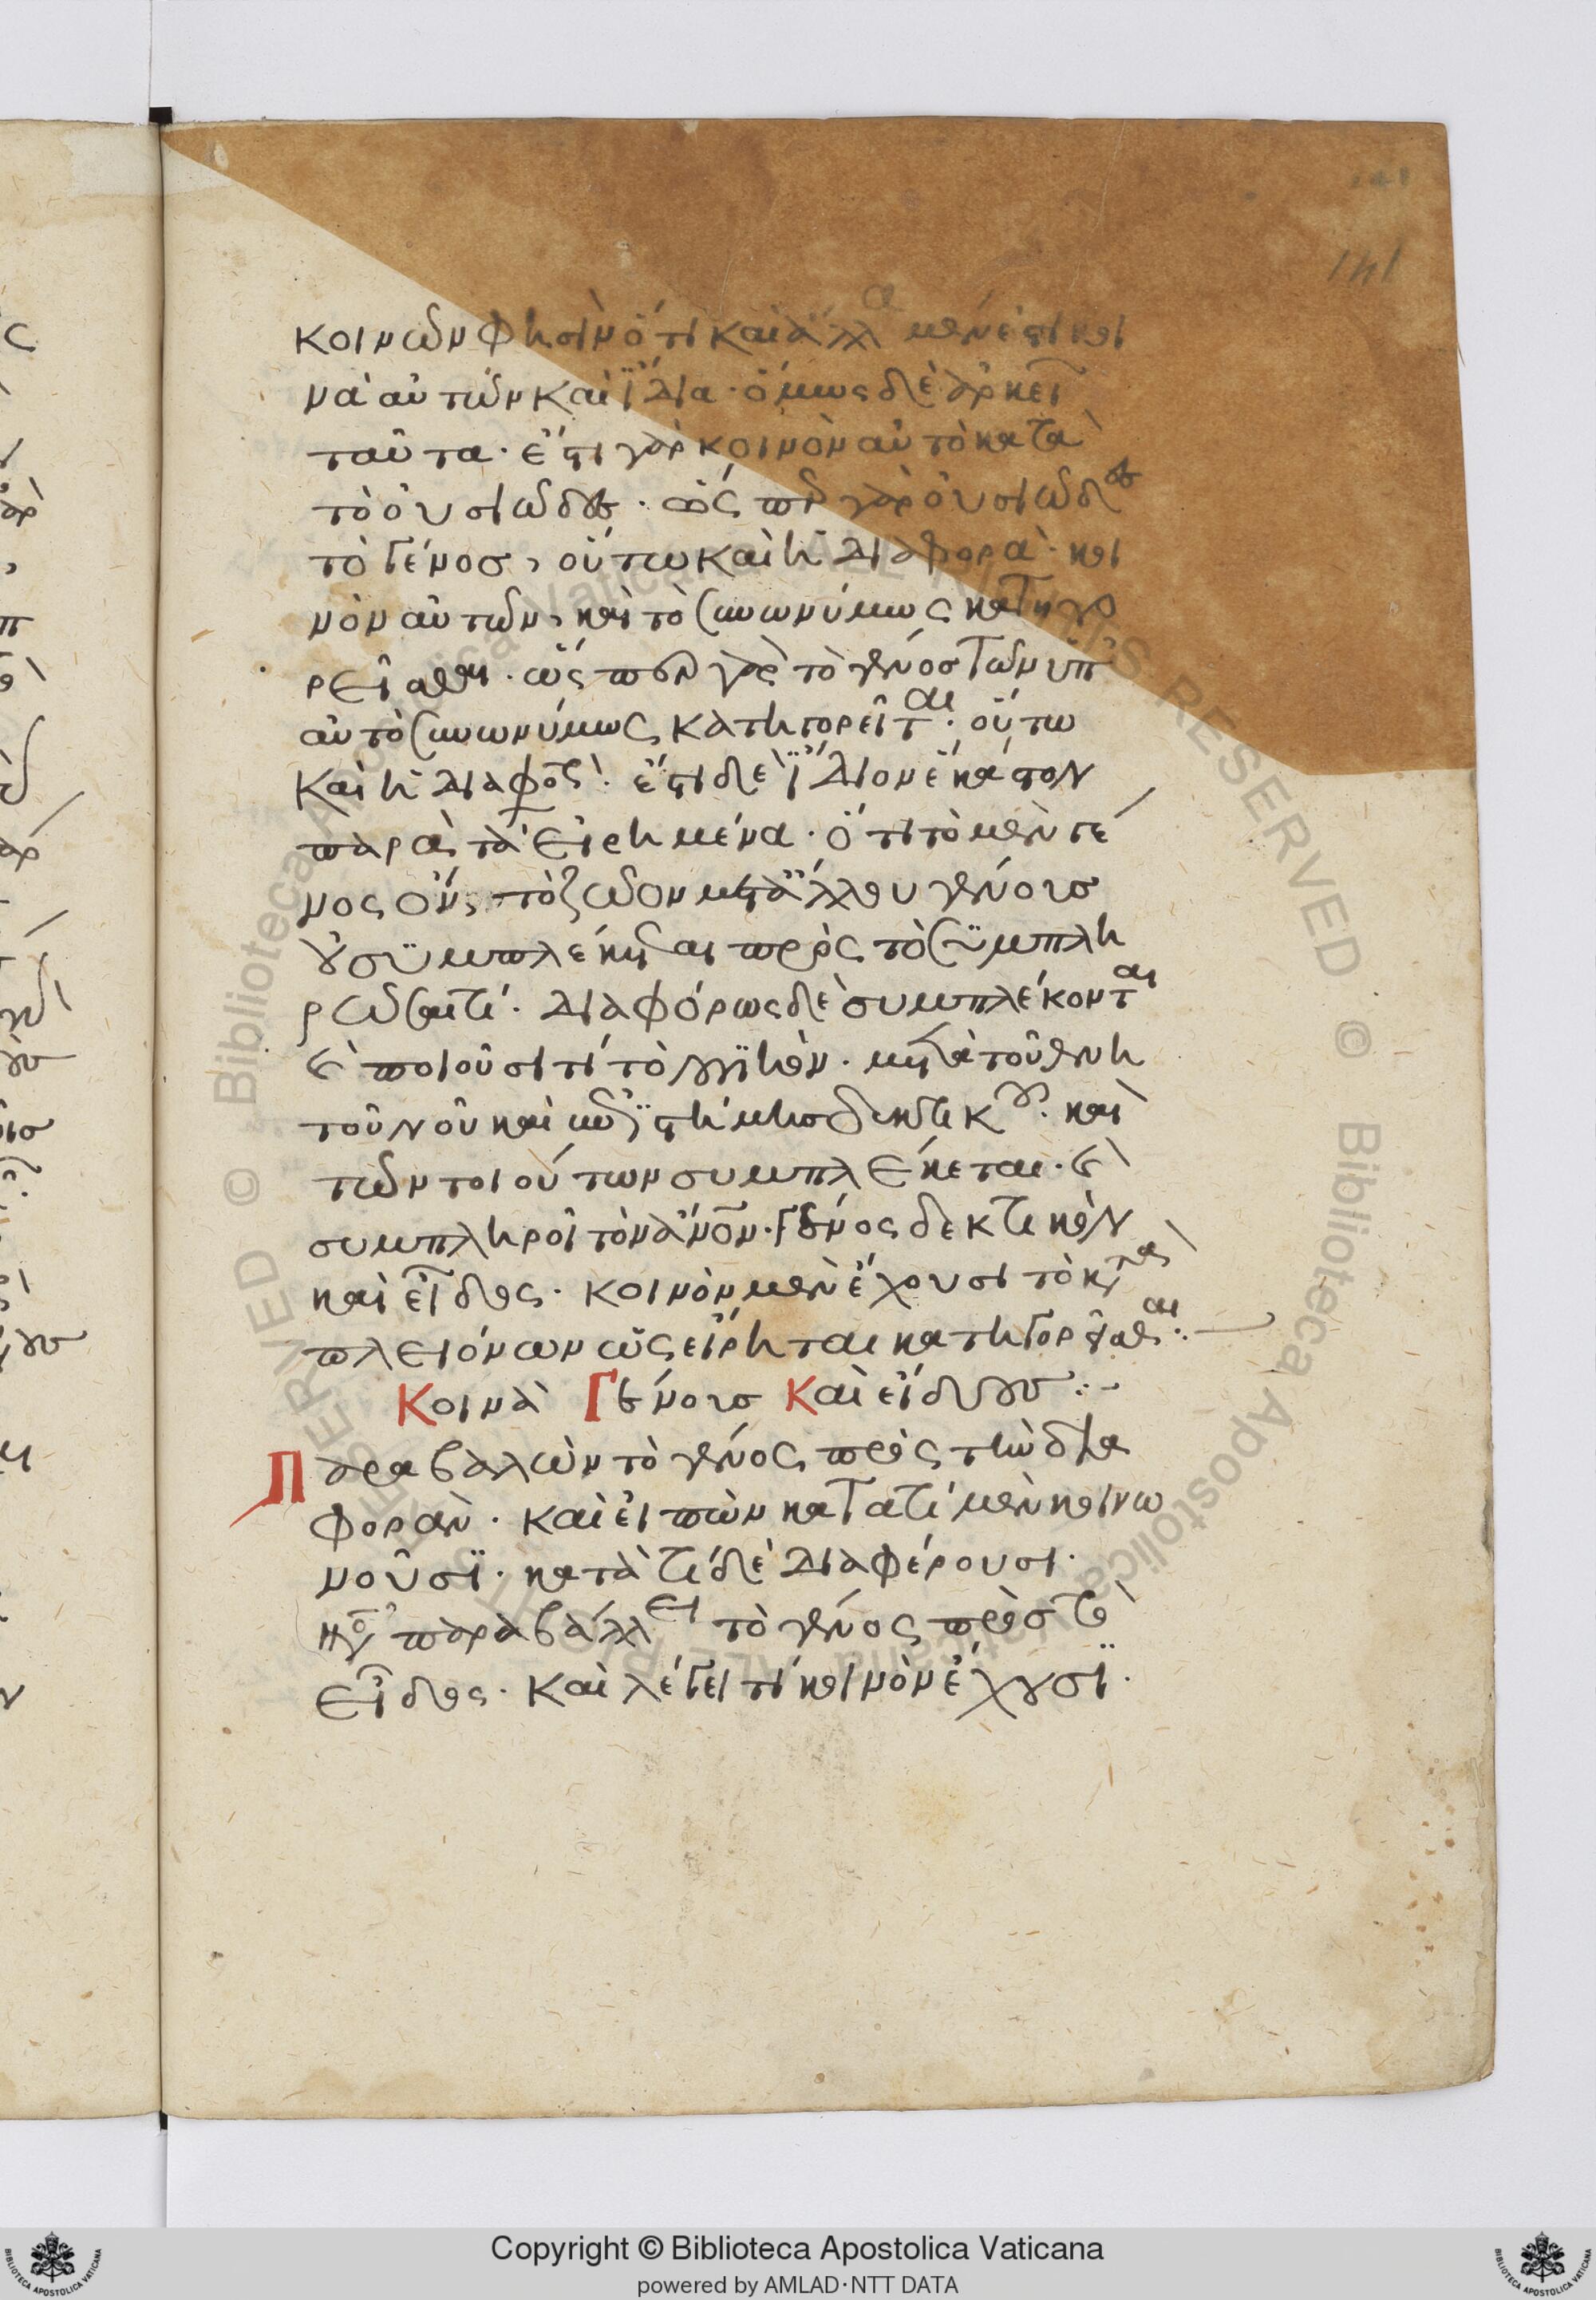 141
κοινῶν φησὶν ὅτι καὶ ἄλλα μέν ἐστι κοι
νὰ αὐτῶν καὶ ἴδια· ὅμως δὲ ἀρκεῖ
ταῦτα· ἔστι γὰρ κοινὸν αὐτὸ κατὰ
τὸ οὐσιῶδες· ὥσπερ γὰρ οὐσιῶδες
τὸ γένος, οὕτω καὶ ἡ διαφορὰ· κοι
νὸν αὐτῶν, καὶ τὸ συνωνύμως κατηγο
ρεῖσθαι· ὥσπερ γὰρ τὸ γένος τῶν ὑπ'
αὐτὸ συνωνύμως κατηγορεῖται· οὕτω
καὶ ἡ διαφορὰ· ἔστι δὲ ἴδιον ἕκαστον
παρὰ τὰ εἰρημένα· ὅτι τὸ μὲν γέ
νος ὂν, τὸ ζῶον μετὰ ἄλλου γένους
οὐ συμπλέκεται πρὸς τὸ συμπλη
ρῶσαί τι· διαφόρως δὲ συμπλέκονται
καὶ ποιοῦσι τί τὸ
τοῦ νοῦ καὶ ἐπιστήμης δεκτικοῦ· καὶ
τῶν τοιούτων συμπλέκεται· καὶ
συμπληροῖ τὸν ἄνον· γένος δεκτικὸν
καὶ εἶδος· κοινὸν μὲν ἔχουσι τὸ κατὰ
πλειόνων ὡς εἴρηται κατηγορεῖσθαι:
Κοινὰ Γένους Καὶ εἴδους:
Παραβαλὼν τὸ γένος πρὸς τὴν δια
φοράν· καὶ εἰπὼν κατὰ τί μὲν κοινω
νοῦσϊ· κατὰ τί δὲ διαφέρουσι·
παραβάλλει τὸ γένος πρὸς τὸ
εἶδος· καὶ λέγει τί κοινὸν ἔχουσϊ·
Copyright © Biblioteca Apostolica Vaticana
powered by AMLAD·NTT DATA